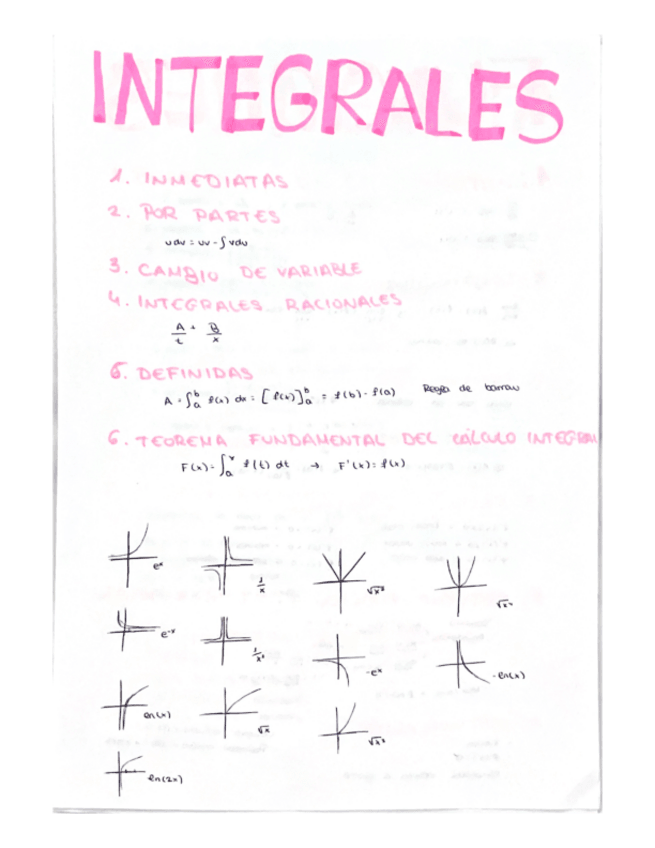 INTEGRALES
1. INMEDIATAS
2. POR PARTES
udv = uv - ∫vdu
3. CAMBIO DE VARIABLE
4. INTEGRALES RACIONALES
A/t + B/x
5. DEFINIDAS
A = ∫ₐᵇ f(x) dx = [f(x)]ₐᵇ = f(b) - f(a) Regla de barrow
6. TEOREMA FUNDAMENTAL DEL CÁLCULO INTEGRAL
F(x) = ∫ₐˣ f(t) dt → F'(x) = f(x)
eˣ
1/x
√x²
e⁻ˣ
1/x²
-eˣ
-ln(x)
ln(x)
√x
√x³
ln(2x)